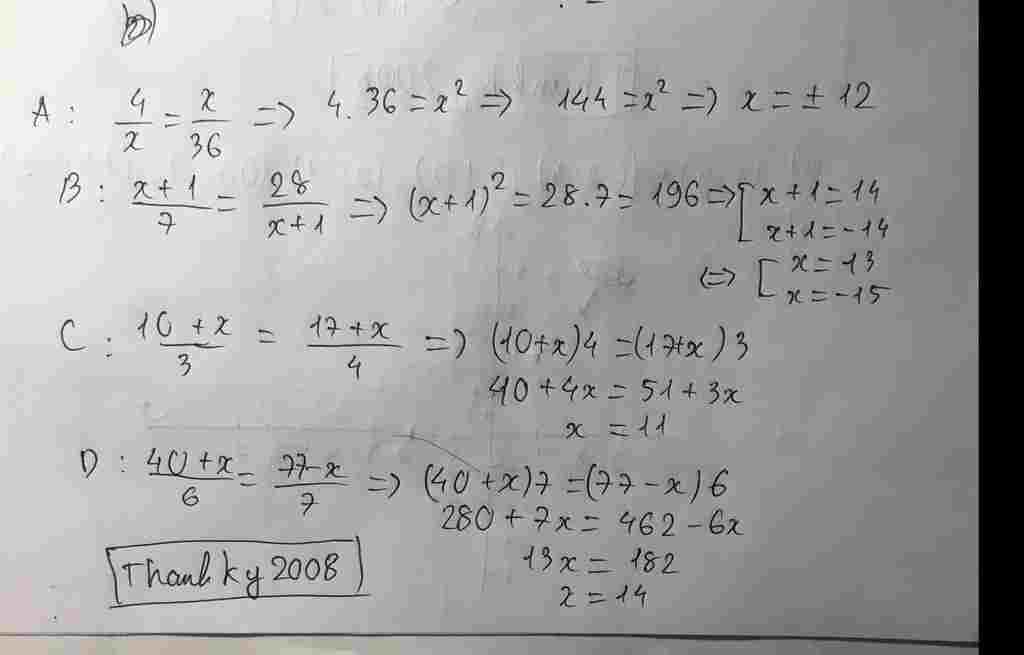 b)
A : 4/x = x/36 => 4.36 = x² => 144 = x² => x = ± 12
B : x+1/7 = 28/x+1 => (x+1)² = 28.7 = 196 => [ x+1 = 14
x+1 = -14
<=> [ x = 13
x = -15
C : 10+x/3 = 17+x/4 => (10+x)4 = (17+x)3
40 + 4x = 51 + 3x
x = 11
D : 40+x/6 = 77-x/7 => (40+x)7 = (77-x)6
280 + 7x = 462 - 6x
13x = 182
x = 14
Thanhky2008